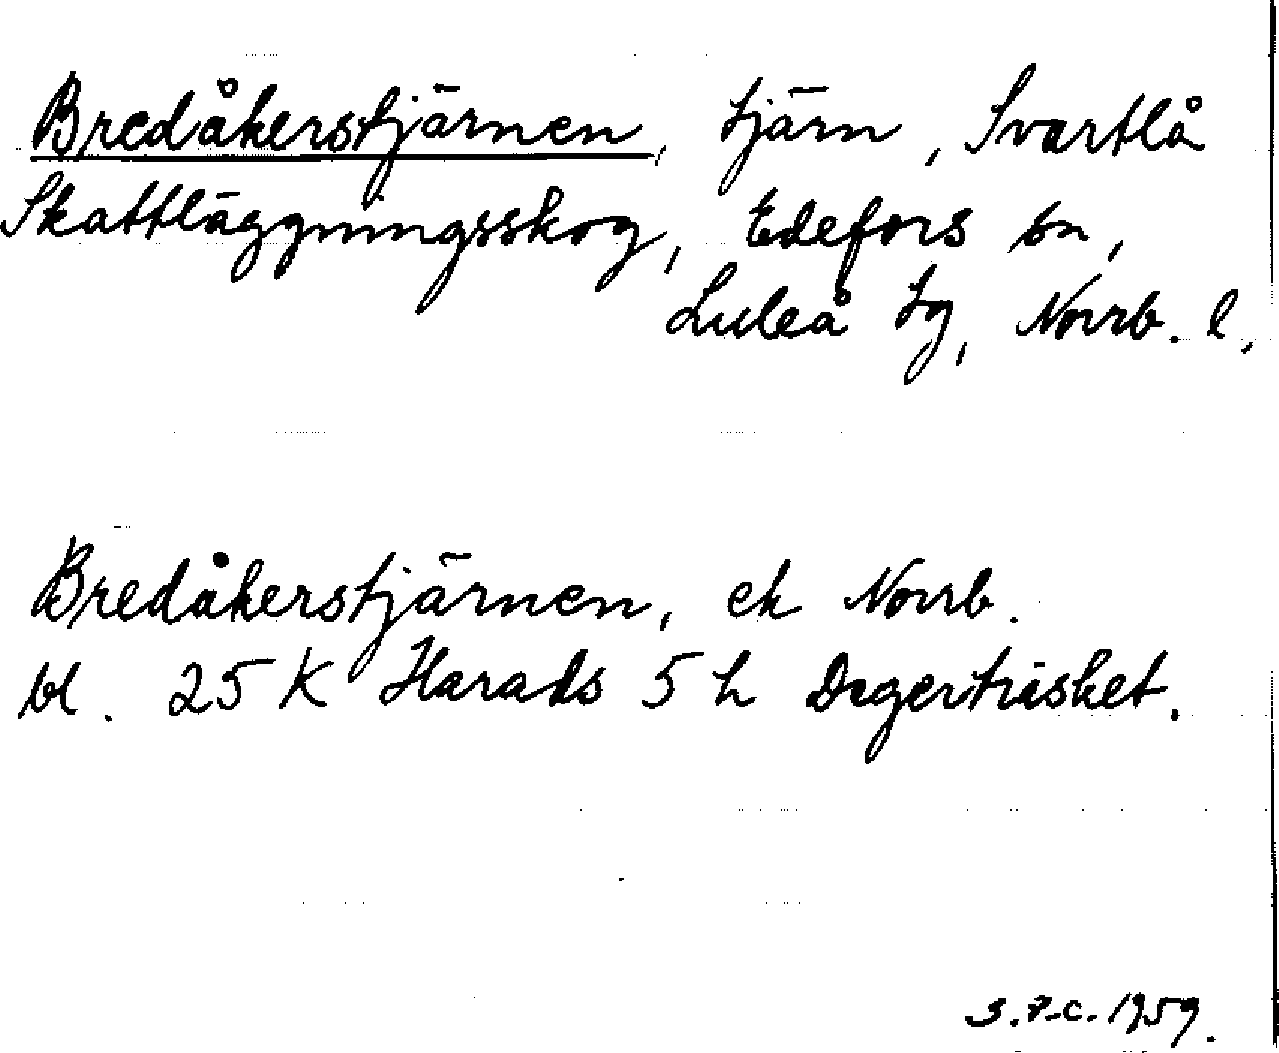 Bredåkerstjärnen, tjärn, Svartlå
Skattläggningsskog, Edefors sn,
Luleå tg, Norrb. l.
Bredåkerstjärnen, ek Norrb.
bl. 25 K Harads 5 h Degerträsket.
S.P-C. 1959.